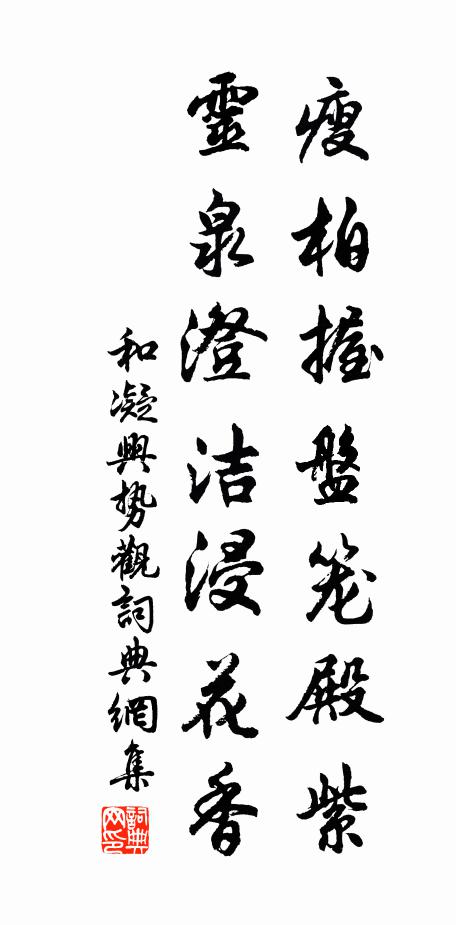 瘦柏握盤笼殿紫
靈泉澄洁浸花香
和凝興势觀詞典網集
詞典网印